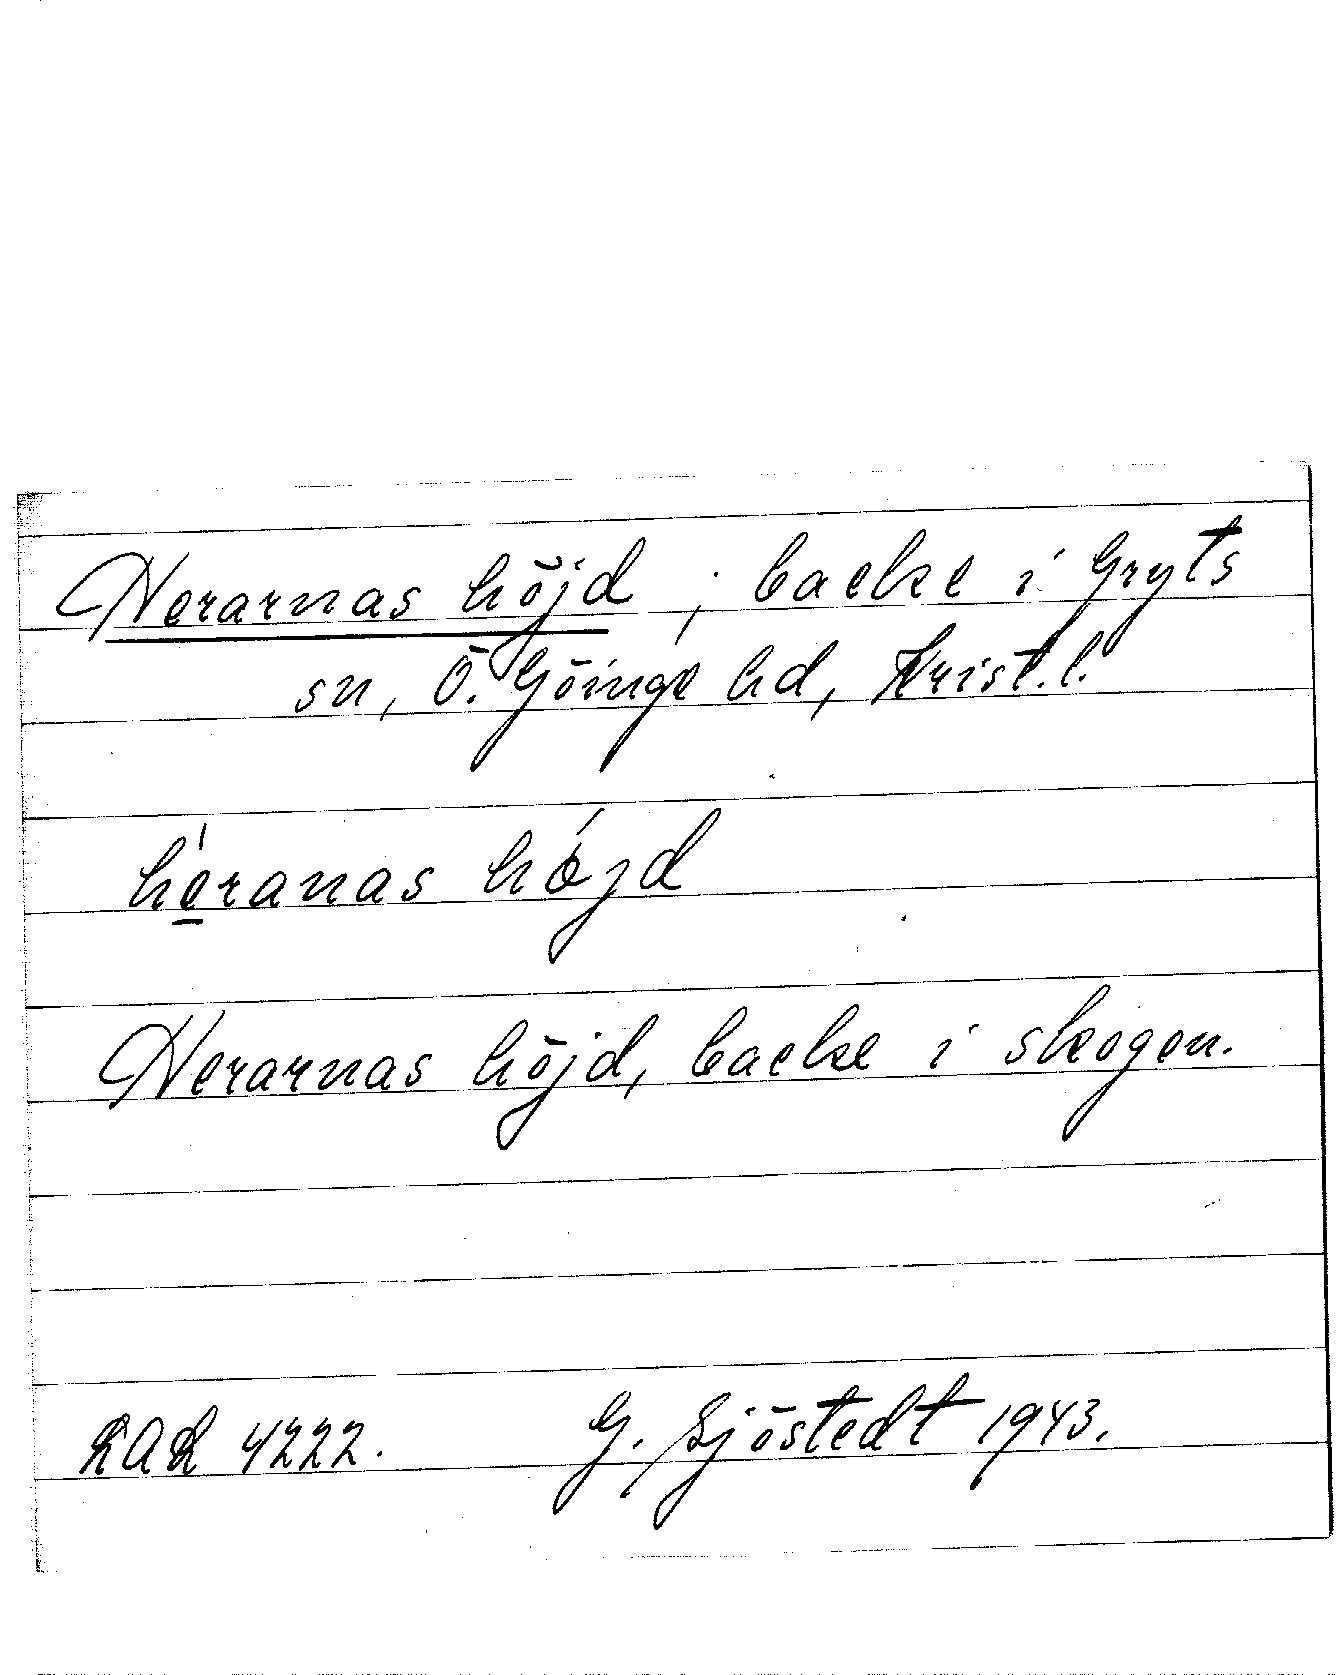 Herarnas höjd, backe i Gryts
sn, Ö. Göinge hd, Krist. l.
héranas hójd
Herarnas höjd, backe i skogen.
LAL 4222. G. Sjöstedt 1943.